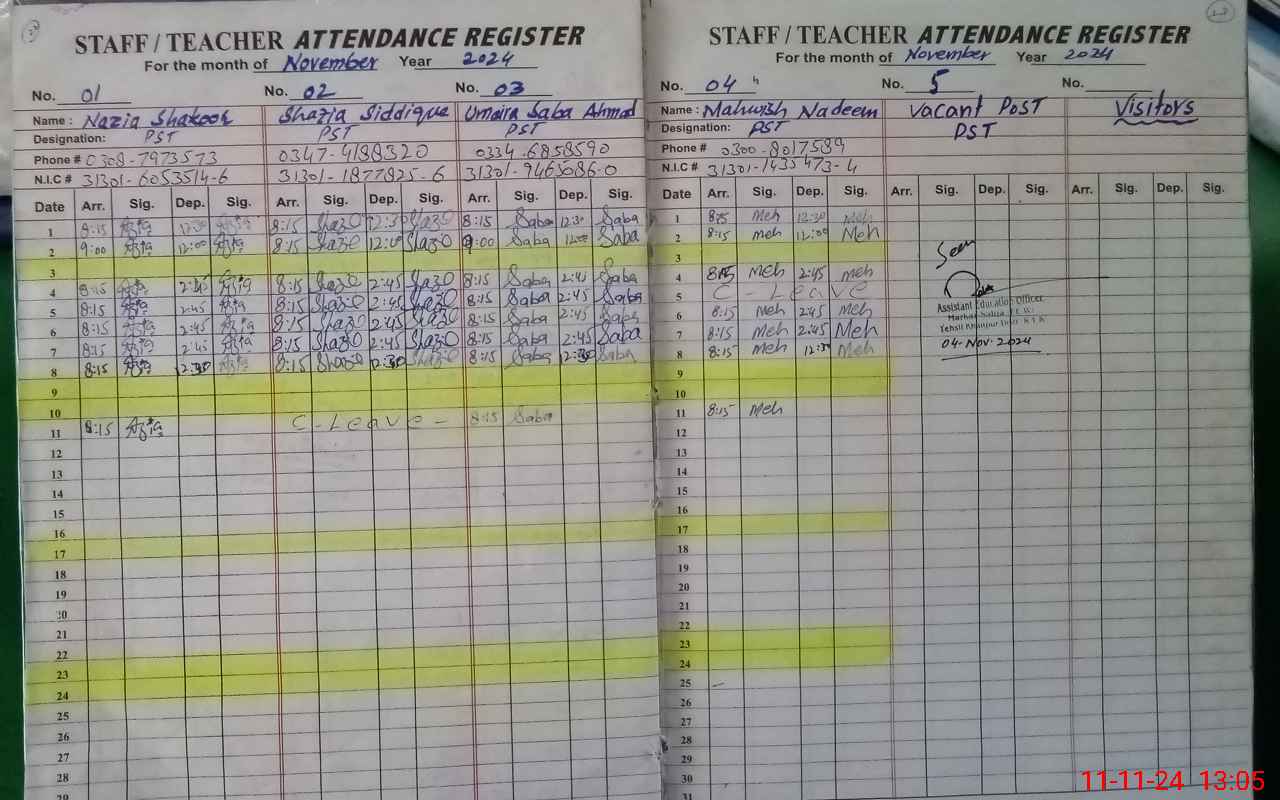 STAFF / TEACHER ATTENDANCE REGISTER
For the month of November Year 2024
No. 01 No. 02 No. 03
Name : Nazia Shakoor Shazia Siddique Umaira Saba Ahmad
Designation: PST PST PST
Phone # 0308-7973573 0347-4188320 0334-6858590
N.I.C # 31301-6053514-6 31301-1877825-6 31301-9465086-0
Date Arr. Sig. Dep. Sig. Arr. Sig. Dep. Sig. Arr. Sig. Dep. Sig.
1 8:15 12:30 8:15 Shazo 12:30 Shazo 8:15 Saba 12:30 Saba
2 9:00 12:00 8:15 Shazo 12:00 Shazo 9:00 Saba 12:00 Saba
3
4 8:15 2:45 8:15 Shazo 2:45 Shazo 8:15 Saba 2:45 Saba
5 8:15 2:45 8:15 Shazo 2:45 Shazo 8:15 Saba 2:45 Saba
6 8:15 2:45 8:15 Shazo 2:45 Shazo 8:15 Saba 2:45 Saba
7 8:15 2:45 8:15 Shazo 2:45 Shazo 8:15 Saba 2:45 Saba
8 8:15 12:30 8:15 Shazo 12:30 Shazo 8:15 Saba 12:30 Saba
9
10
11 8:15 C - Leave - 8:15 Saba
12
13
14
15
16
17
18
19
20
21
22
23
24
25
26
27
28
29
STAFF / TEACHER ATTENDANCE REGISTER
For the month of November Year 2024
No. 04 No. 5 No.
Name : Mahwish Nadeem Vacant Post Visitors
Designation: PST PST
Phone # 0300-8017589
N.I.C # 31301-1435473-4
Date Arr. Sig. Dep. Sig. Arr. Sig. Dep. Sig. Arr. Sig. Dep. Sig.
1 8:15 Meh 12:30 Meh
2 8:15 Meh 12:00 Meh
3
Seen
4 8:15 Meh 2:45 Meh
5 C - Leave
Assistant Education Officer
6 8:15 Meh 2:45 Meh
7 8:15 Meh 2:45 Meh
04-Nov-2024
8 8:15 Meh 12:30 Meh
9
10
11 8:15 Meh
12
13
14
15
16
17
18
19
20
21
22
23
24
25
26
27
28
29
30
31
11-11-24 13:05